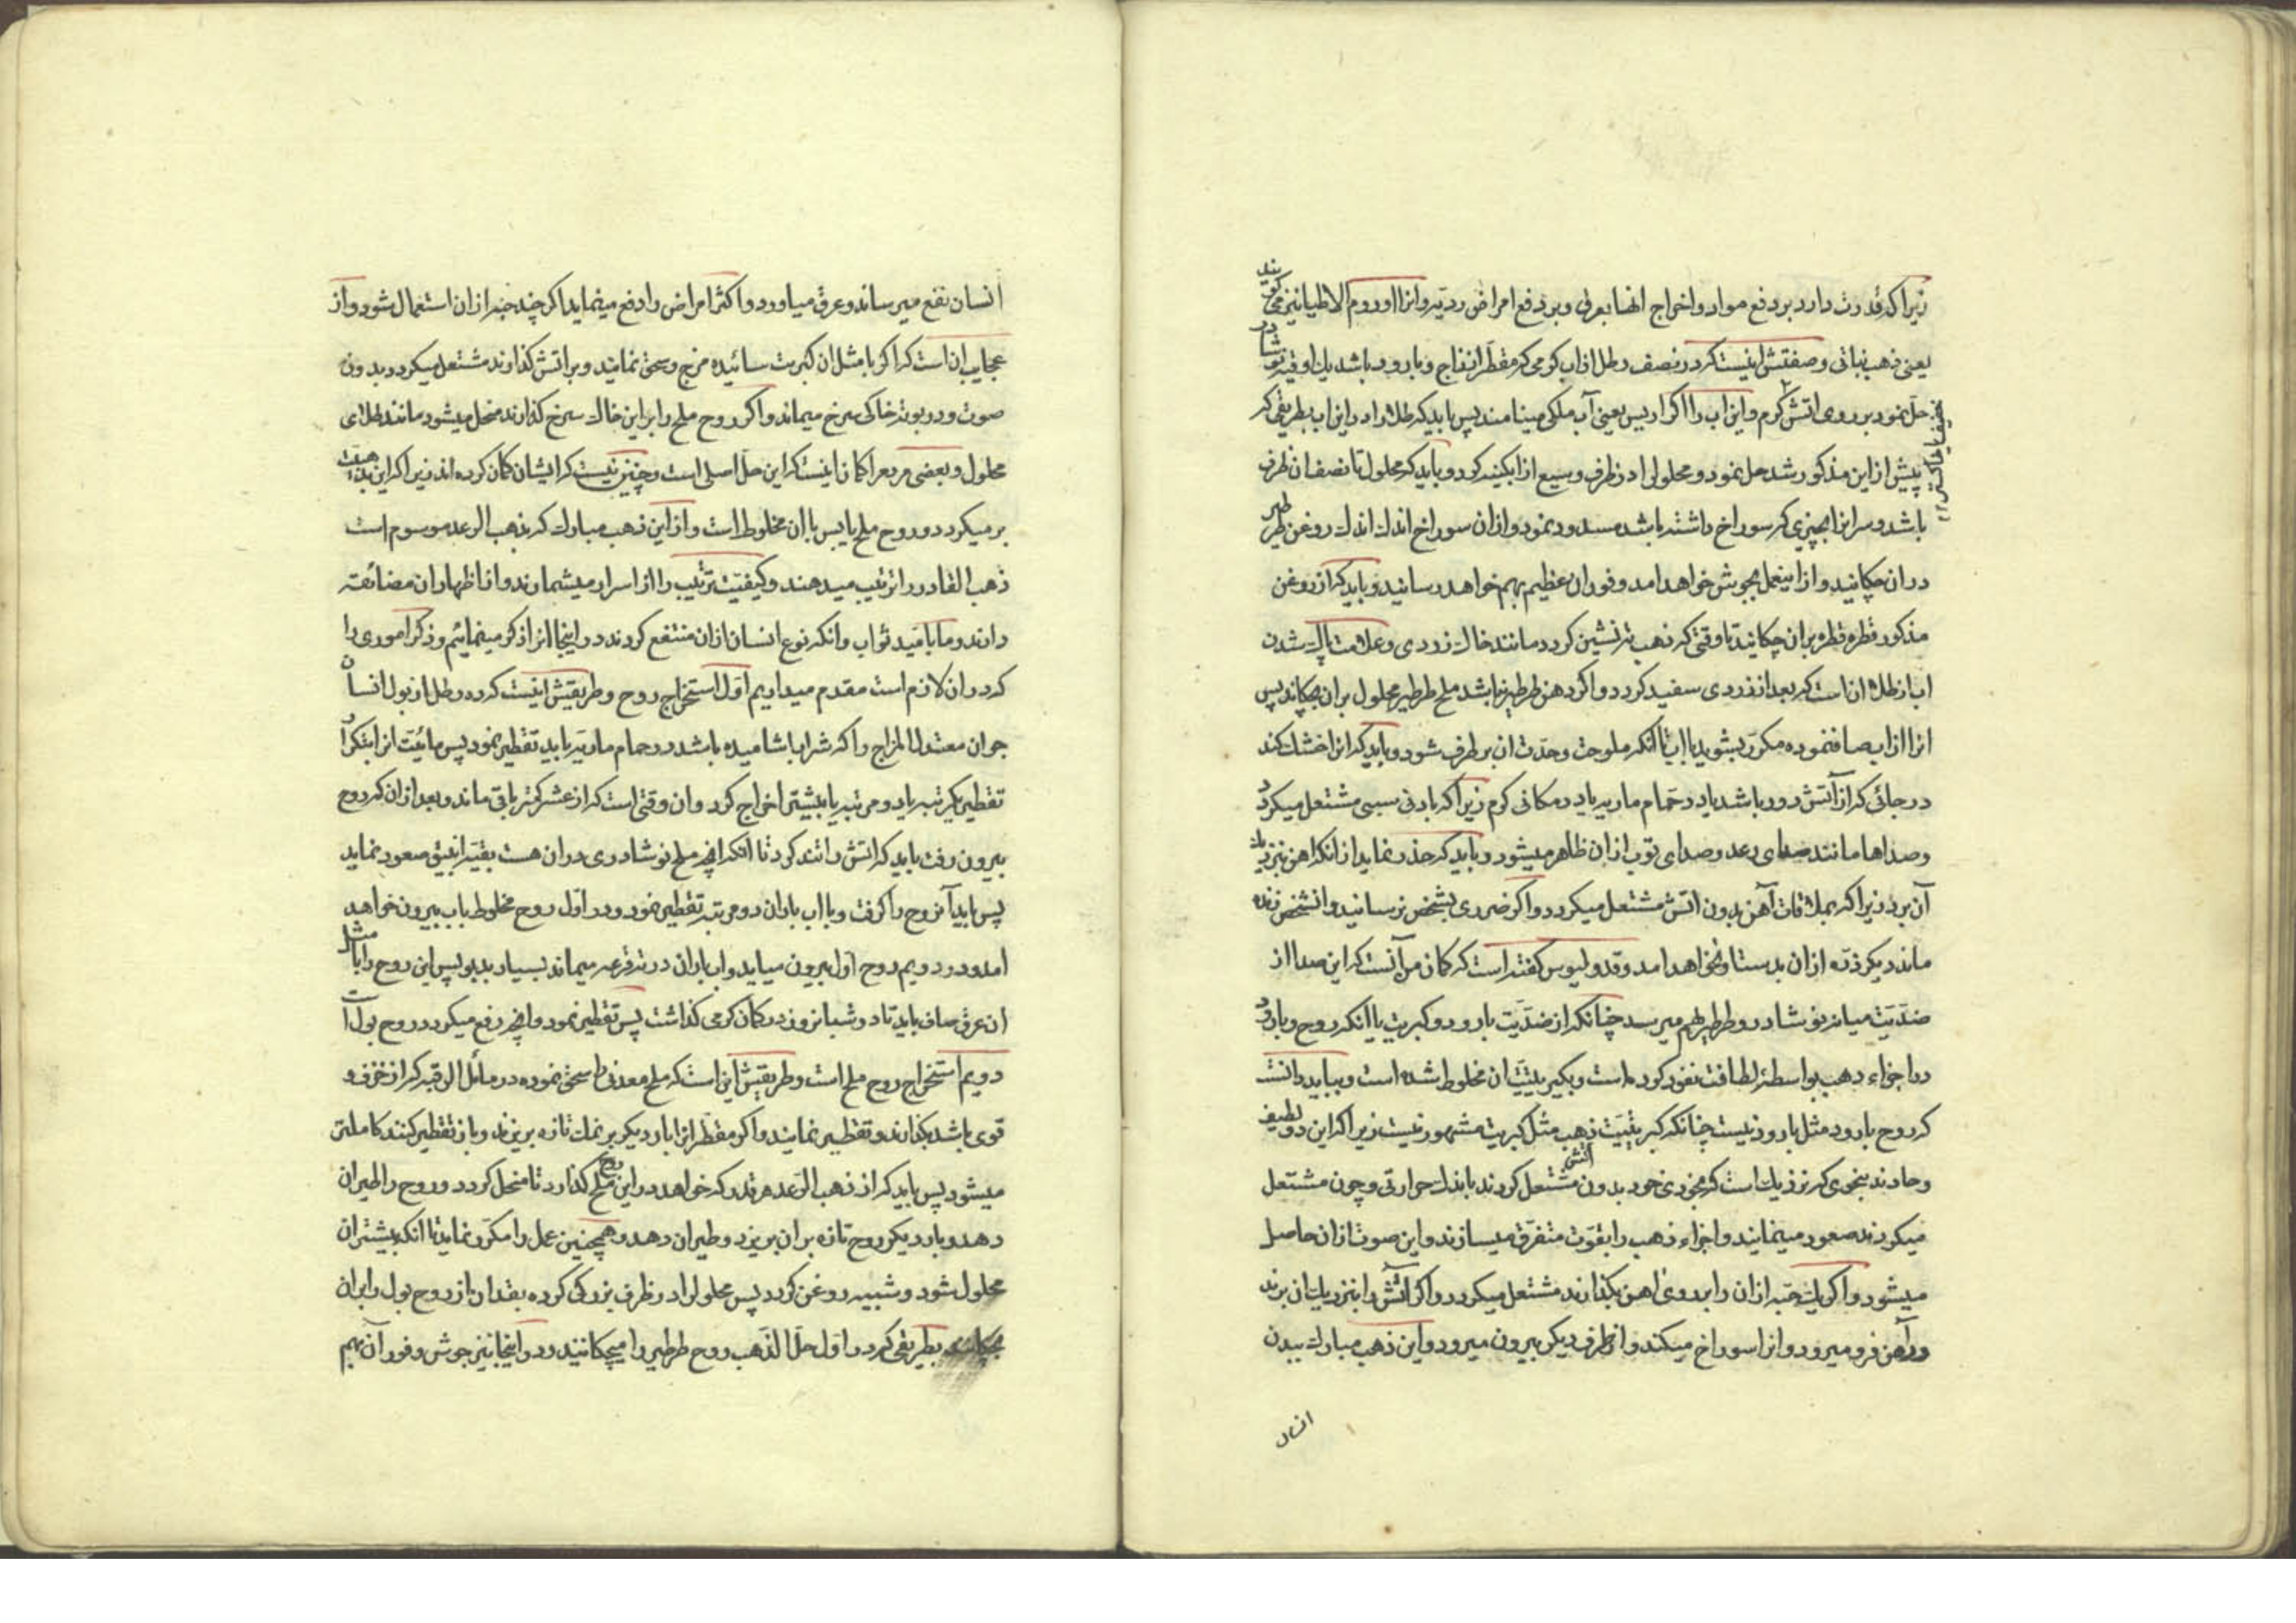 زیرا که قدرت دارد بر دفع مواد و اخراج انها بعرق و بر دفع امراض ردیه و انرا اوروم الاطیا نیز می گویند
یعنی ذهب نباتی و صفتش اینست که در نصف رطل از اب کرمی که مقطر از زاج و بارود باشد یك اوقیه نوشادر
حل نمود بر روی اتش گرم و این اب را اکوا ردیس یعنی آب ملکی مینامند پس باید که طلا را در این اب بطریقی که
پیش از این مذکور شد حل نمود و محلول را در ظرف وسیع از ابکینه کرد و باید که محلول تا نصف ان ظرف
باشد و سر انرا بچیزی که سوراخ داشته باشد مسدود نمود و از ان سوراخ اندك اندك روغن طرطیر
در ان چکانید و از اینعمل بجوش خواهد امد و فوران عظیم بهم خواهد رسانید و باید که از روغن
مذکور قطره قطره بران چکانید تا وقتی که ذهب ته نشین کردد مانند خاك زردی و علامت پاك شدن
اب از طلا ان است که بعد از زردی سفید کردد و اکر دهن طرطیر نباشد ملح طرطیر محلول بران چکاند پس
انرا از اب صاف نموده مکرر بشوید با اب تا انکه ملوحت و حدت ان برطرف شود و باید که انرا خشك کند
در جائی که از آتش دور باشد یا در حمام ماریه یا در مکانی کرم زیرا که بادنی سببی مشتعل میکردد
و صداها مانند صدای رعد و صدای توپ از ان ظاهر میشود و باید که حذر نماید از انکه اهن بنزدیك
آن برد زیرا که بملاقات آهن بدون اتش مشتعل میکردد و اکر ضرری بشخص نرسانید و انشخص زنده
ماند دیکر ذره از ان بدست او نخواهد امد و قدولیوس کفته است که کمان من آنست که این صدا از
ضدیت میانه نوشادر و طرطیر بهم میرسد چنانکه از ضدیت بارود و کبریت یا انکه روح بارود
در اجزاء ذهب بواسطه لطافت نفوذ کرده است و بکبریتیت ان مخلوط شده است و بباید دانست
که روح بارود مثل بارود نیست چنانکه کبریتیت ذهب مثل کبریت مشهور نیست زیرا که این دو لطیف
و حادند بنحوی که نزدیك است که بخودی خود بدون اتش مشتعل کردند باندك حرارتی و چون مشتعل
میکردند صعود مینمایند و اجزاء ذهب را بقوت متفرق میسازند و این صوت از ان حاصل
میشود و اکر یك حبه از ان را بر روی اهن بکذارند مشتعل میکردد و اکر اتش را بنزدیك ان برند
در آهن فرو میرود و انرا سوراخ میکند و از طرف دیکر بیرون میرود و این ذهب مبارك ببدن
انسان
انسان نفع میرساند و عرق میاورد و اکثر امراض را دفع مینماید اکر چند حبه از ان استعمال شود و از
عجایب ان است که اکر با مثل ان کبریت سائیده مزج و سحق نمایند و بر اتش کذارند مشتعل میکردد بدون
صوت و در بوته خاکی سرخ میماند و اکر روح ملح را بر این خاك سرخ کذارند منحل میشود مانند طلای
محلول و بعضی مردم را کمان اینست که این حل اصلی است و چنین نیست که ایشان کمان کرده اند زیرا که این بذهبیت
برمیکردد و روح ملح یابس با ان مخلوط است و از این ذهب مبارك که بذهب الرعد موسوم است
ذهب القادر را ترتیب میدهند و کیفیت ترتیب را از اسرار میشمارند و از اظهار ان مضائقه
دارند و ما بامید ثواب و انکه نوع انسان از ان منتفع کردند در اینجا انرا ذکر مینمائیم و ذکر اموری را
که در ان لازم است مقدم میداریم اول استخراج روح و طریقش اینست که ده رطل از بول انسان
جوان معتدل المزاج را که شراب اشامیده باشد در حمام ماریه باید تقطیر نمود پس مائیت انرا بتکرار
تقطیر یکمرتبه یا دو مرتبه یا بیشتر اخراج کرد و ان وقتی است که از عشر کمتر باقی ماند و بعد از ان که روح
بیرون رفت باید که اتش را تند کرد تا انکه انچه ملح نوشادری در ان هست بقبه انبیق صعود نماید
پس باید آنروح را کرفت و با اب باران دو مرتبه تقطیر نمود و در اول روح مخلوط باب بیرون خواهد
امد و در دویم روح اول بیرون میاید و اب باران در ته قرعه میماند بسیار بدبو پس این روح را با مثل
ان عرق صاف باید تا دو شبانروز در مکان کرمی کذاشت پس تقطیر نمود و انچه رفع میکردد روح بول است
دویم استخراج روح ملح است و طریقش این است که ملح معدنی را سحق نموده در مائل الرقبه که از خزف و
قوی باشد بکذارند و تقطیر نمایند و اکر مقطر انرا بار دیکر بر نمك تازه بریزند و باز تقطیر کنند کاملتر
میشود پس باید که از ذهب الرعد هر قدر که خواهد در این روح ملح کذارد تا منحل کردد و روح را طیران
دهد و بار دیکر روح تازه بر ان بریزد و طیران دهد و همچنین عمل را مکرر نماید تا انکه بیشتر ان
محلول شود و شبیه روغن کردد پس محلول را در ظرف بزرکی کرده بقدر ان از روح بول را بران
بچکانند بطریقی که در اول حل الذهب روح طرطیر را میچکانیند و در اینجا نیز جوش و فوران بهم